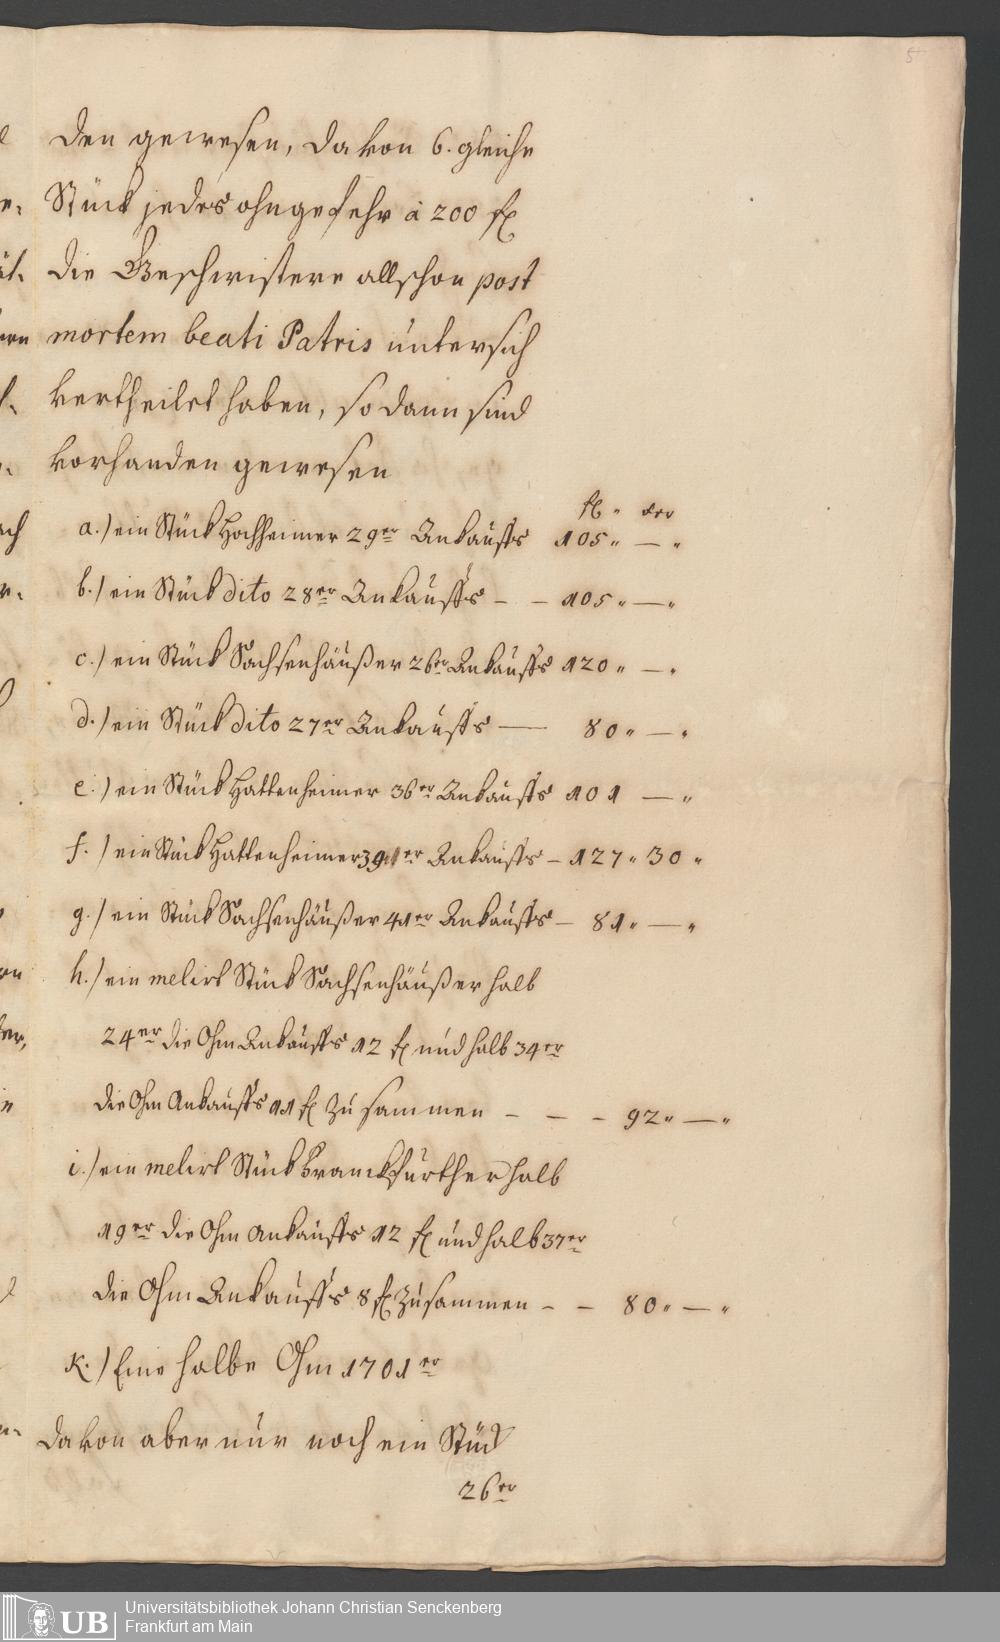 5
den gewesen, davon 6. gleiche
Stück jedes ohngefehr à 200 fl
die Geschwistere allschon post
mortem beati Patris untersich
vertheilet haben, so dann sind
vorhanden gewesen
fl " xer
a.) ein Stück Hochheimer 29er Ankauffs 105 " — "
b.) ein Stück dito 28er Ankauffs - - 105 " — "
c.) ein Stück Sachsenhäußer 26er Ankauffs 120 " — "
d.) ein Stück dito 27er Ankauffs — 80 " — "
e.) ein Stück Hattenheimer 36er Ankauffs 101 — "
f.) ein Stück Hattenheimer er Ankauffs - 127 " 30 "
g.) ein Stück Sachsenhäußer 41er Ankauffs - 81 " — "
h.) ein melirt Stück Sachsenhäußer halb
24er die Ohm Ankauffs 12 fl und halb 34er
die Ohm Ankauffs 11 fl zusammen - - - 92 " — "
i.) ein melirt Stück Franckfurther halb
19er die Ohm Ankauffs 12 fl und halb 37er
die Ohm Ankauffs 8 fl zusammen - - 80 " — "
K.) Eine halbe Ohm 1701er
davon aber nur noch ein Stück
26er
UB Universitätsbibliothek Johann Christian Senckenberg
Frankfurt am Main